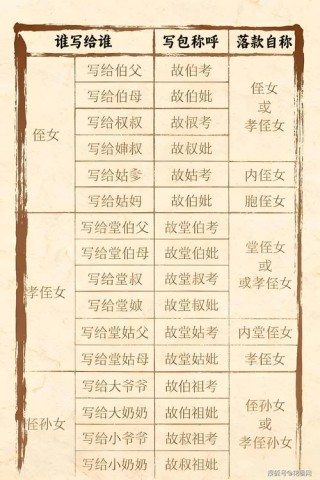 谁写给谁 写包称呼 落款自称
侄女
写给伯父 故伯考
写给伯母 故伯妣
写给叔叔 故叔考
写给婶叔 故叔妣
侄女
或
孝侄女
写给姑爹 故姑考 内侄女
写给姑妈 故伯妣 胞侄女
孝侄女
写给堂伯父 故堂伯考
写给堂伯母 故堂伯妣
写给堂叔 故堂叔考
写给堂 故堂叔妣
堂侄女
或
或孝侄女
写给堂姑父 故堂姑考 内堂侄女
写给堂姑母 故堂姑妣 孝侄女
侄孙女
写给大爷爷 故伯祖考
写给大奶奶 故伯祖妣
写给小爷爷 故叔祖考
写给小奶奶 故叔祖妣
侄孙女
或
孝侄孙女